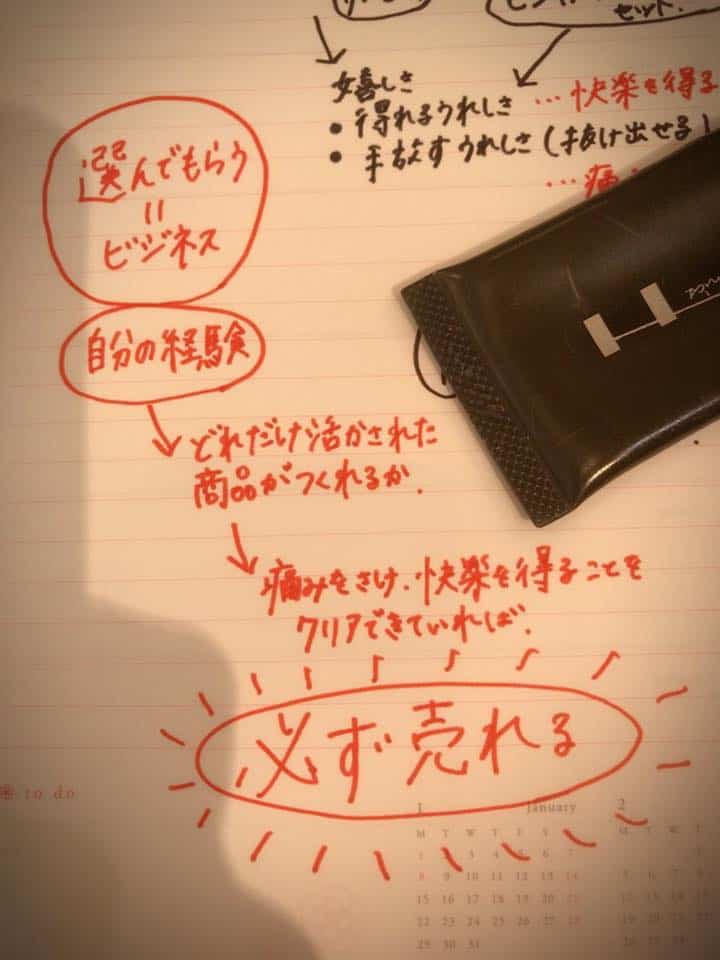 セット.
嬉しさ
• 得れるうれしさ
…快楽を得る
• 手放すうれしさ(抜け出せる)
…痛
選んでもらう
=
ビジネス
自分の経験
どれだけ活かされた
商品がつくれるか.
痛みをさけ.快楽を得ることを
クリアできていれば.
必ず売れる
to do
1 January
M T W T F S S
1 2 3 4 5 6 7
8 9 10 11 12 13 14
15 16 17 18 19 20 21
22 23 24 25 26 27 28
29 30 31
2
M T W T
5 6 7 8